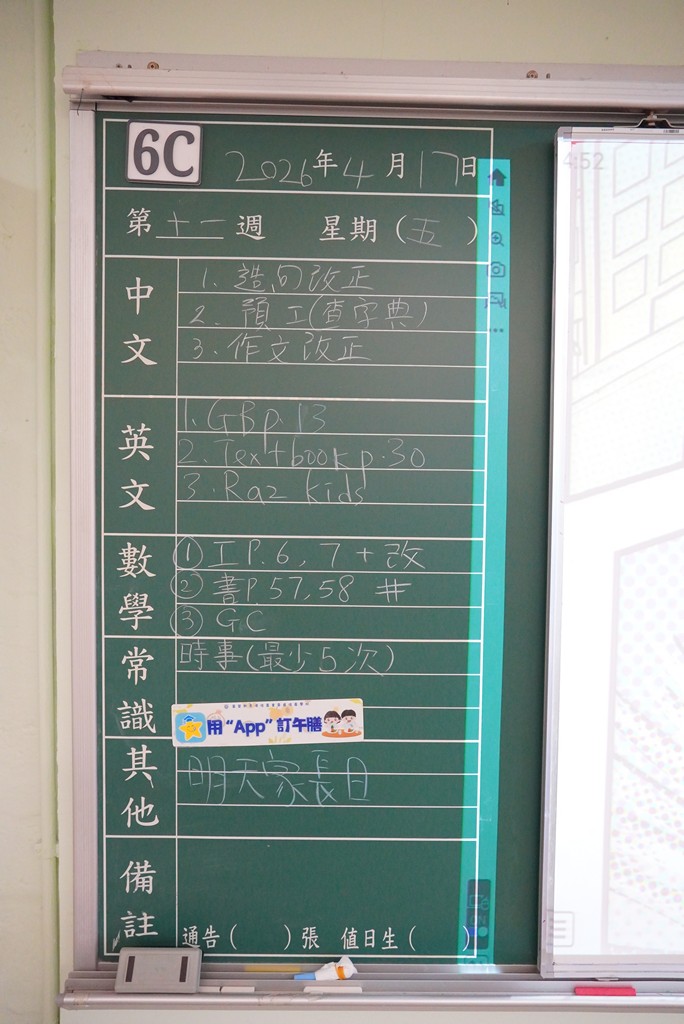 6C 2026年4月17日
第十一週 星期(五)
中文
1. 造句改正
2. 預工(查字典)
3. 作文改正
英文
1. GB p.13
2. Textbook p.30
3. Raz kids
數學
① 工P.6, 7+改
② 書P.57,58 #
③ GC
常識
時事(最少5次)
用“App”訂午膳
其他
明天家長日
備註
通告( )張 值日生( )
4:52